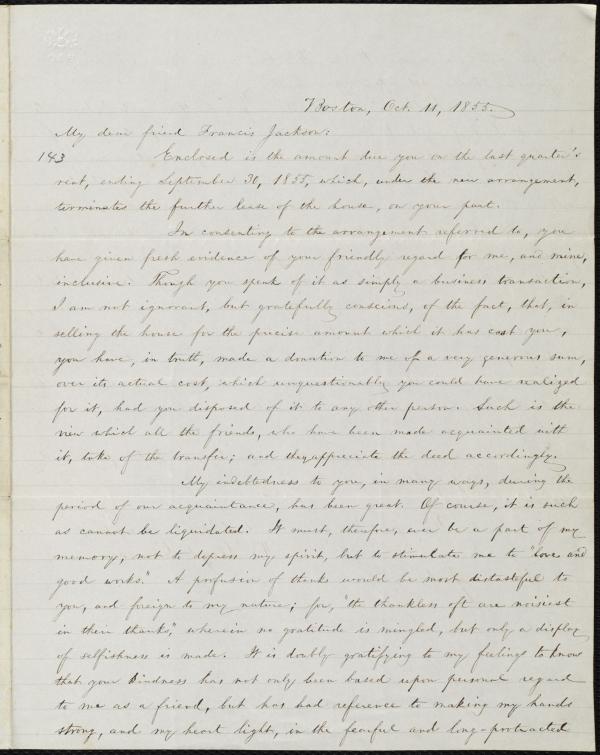 Boston, Oct. 11, 1855.
My dear friend Francis Jackson:
143 Enclosed is the amount due you on the last quarter's
rent, ending September 30, 1855, which, under the new arrangement,
terminates the further lease of the house, on your part.
In consenting to the arrangement referred to, you
have given fresh evidence of your friendly regard for me, and mine,
inclusive. Though you speak of it as simply a business transaction,
I am not ignorant, but gratefully conscious, of the fact, that, in
selling the house for the precise amount which it has cost you,
you have, in truth, made a donation to me of a very generous sum,
over its actual cost, which unquestionably you could have realized
for it, had you disposed of it to any other person. Such is the
view which all the friends, who have been made acquainted with
it, take of the transfer; and they appreciate the deed accordingly.
My indebtedness to you, in many ways, during the
period of our acquaintance, has been great. Of course, it is such
as cannot be liquidated. It must, therefore, ever be a part of my
memory, not to depress my spirit, but to stimulate me to "love and
good works." A profusion of thanks would be most distasteful to
you, and foreign to my nature; for, "the thankless oft are noisiest
in their thanks," wherein no gratitude is mingled, but only a display
of selfishness is made. It is doubly gratifying to my feelings to know
that your kindness has not only been based upon personal regard
to me as a friend, but has had reference to making my hands
strong, and my heart light, in the fearful and long-protracted